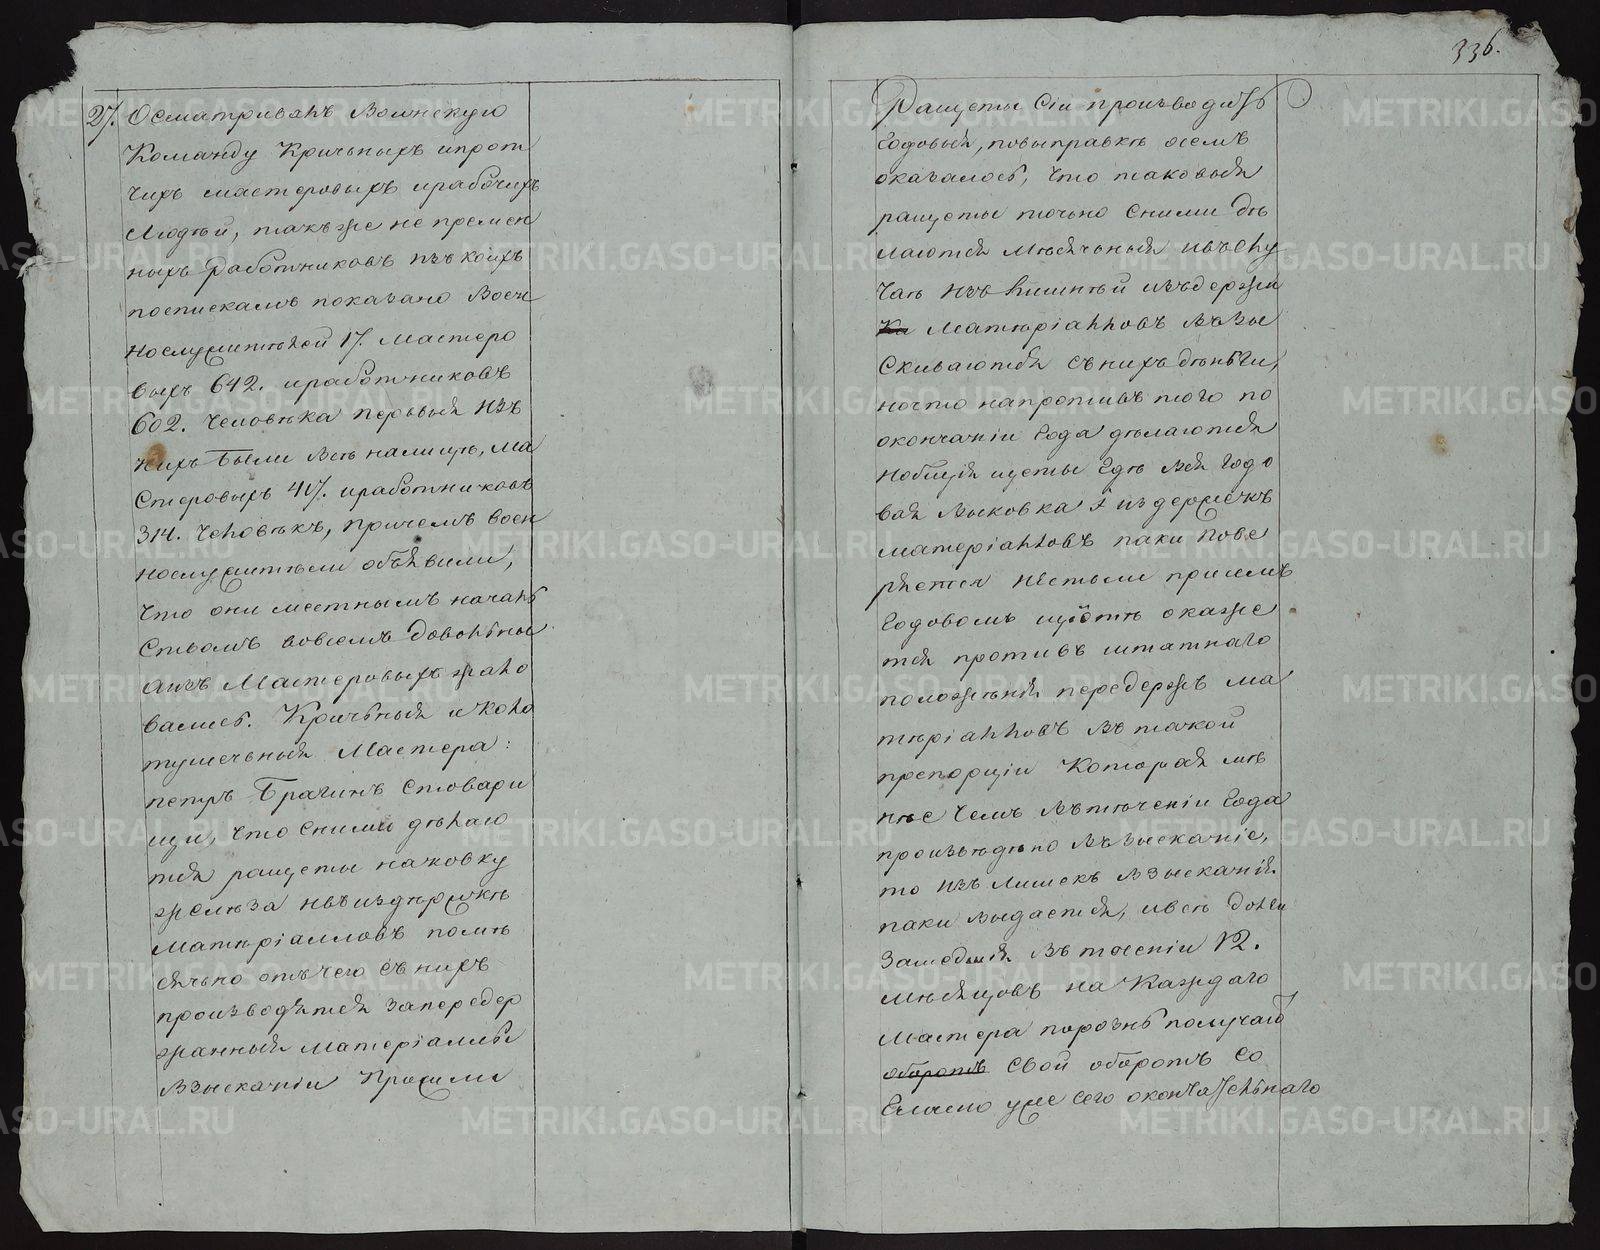 336.
27. Осматривалъ Воинскую
Команду Кричьныхъ ипрот
чихъ мастеровыхъ ирабочихъ
Людѣй, такъ же не премен
ныхъ Работниковъ изъ коихъ
поспискамъ показано Воен
нослужителей 17. Мастеро
выхъ 642. иработниковъ
602. Человѣка первыя изъ
нихъ были всѣ налицо, Ма
стеровыхъ 417. иработниковъ
314. Человѣкъ, причемъ воен
нослужители объявили,
Что они местнымъ началь
ствомъ вовсемъ довольны
аизъ Мастеровыхъ жало
вались. Кричьныя и коло
тушечныя Мастера:
петръ Брагинъ стовари
щи, Что Сними дѣлаю
тся ращеты наковку
желѣза ивъиздѣржкѣ
Матѣріалловъ помѣ
сячно отъчего съ нихъ
производятся Запередер
жанныя материіалы
Взысканіи Просили
Ращеты Сіи производить
Годовыя, повыправкѣ осемъ
оказалось, Что таковыя
ращеты точно Сними дѣ
лаются Мѣсячныя ивъслу
чаѣ изъ Лишнѣй изъдержки
Ка Матѣріалловъ Взъы
Скиваются съ нихъ дѣньги,
ночто напротивъ того по
окончаніи Года дѣлаются
иобщія щеты Гдѣ вся Годо
вая выковка и издержекъ
материалловъ паки пове
ряется иестьли присемъ
Годовомъ щотѣ окаже
тся противъ штатнаго
положѣнія передержъ ма
тѣріалловъ Въ такой
препорціи Которая мѣ
нѣе Чемъ Вътѣченіи Года
произвѣдѣно Взъысканіе,
то изъ Лишекъ взысканія
паки выдается, ивсѣ долги
Зашедшія Въ теченіи 12.
мѣсяцовъ на Каждаго
Мастера порознь получаютъ
оборотъ Свой оборотъ Со
Гличено уже Сего окончательнаго